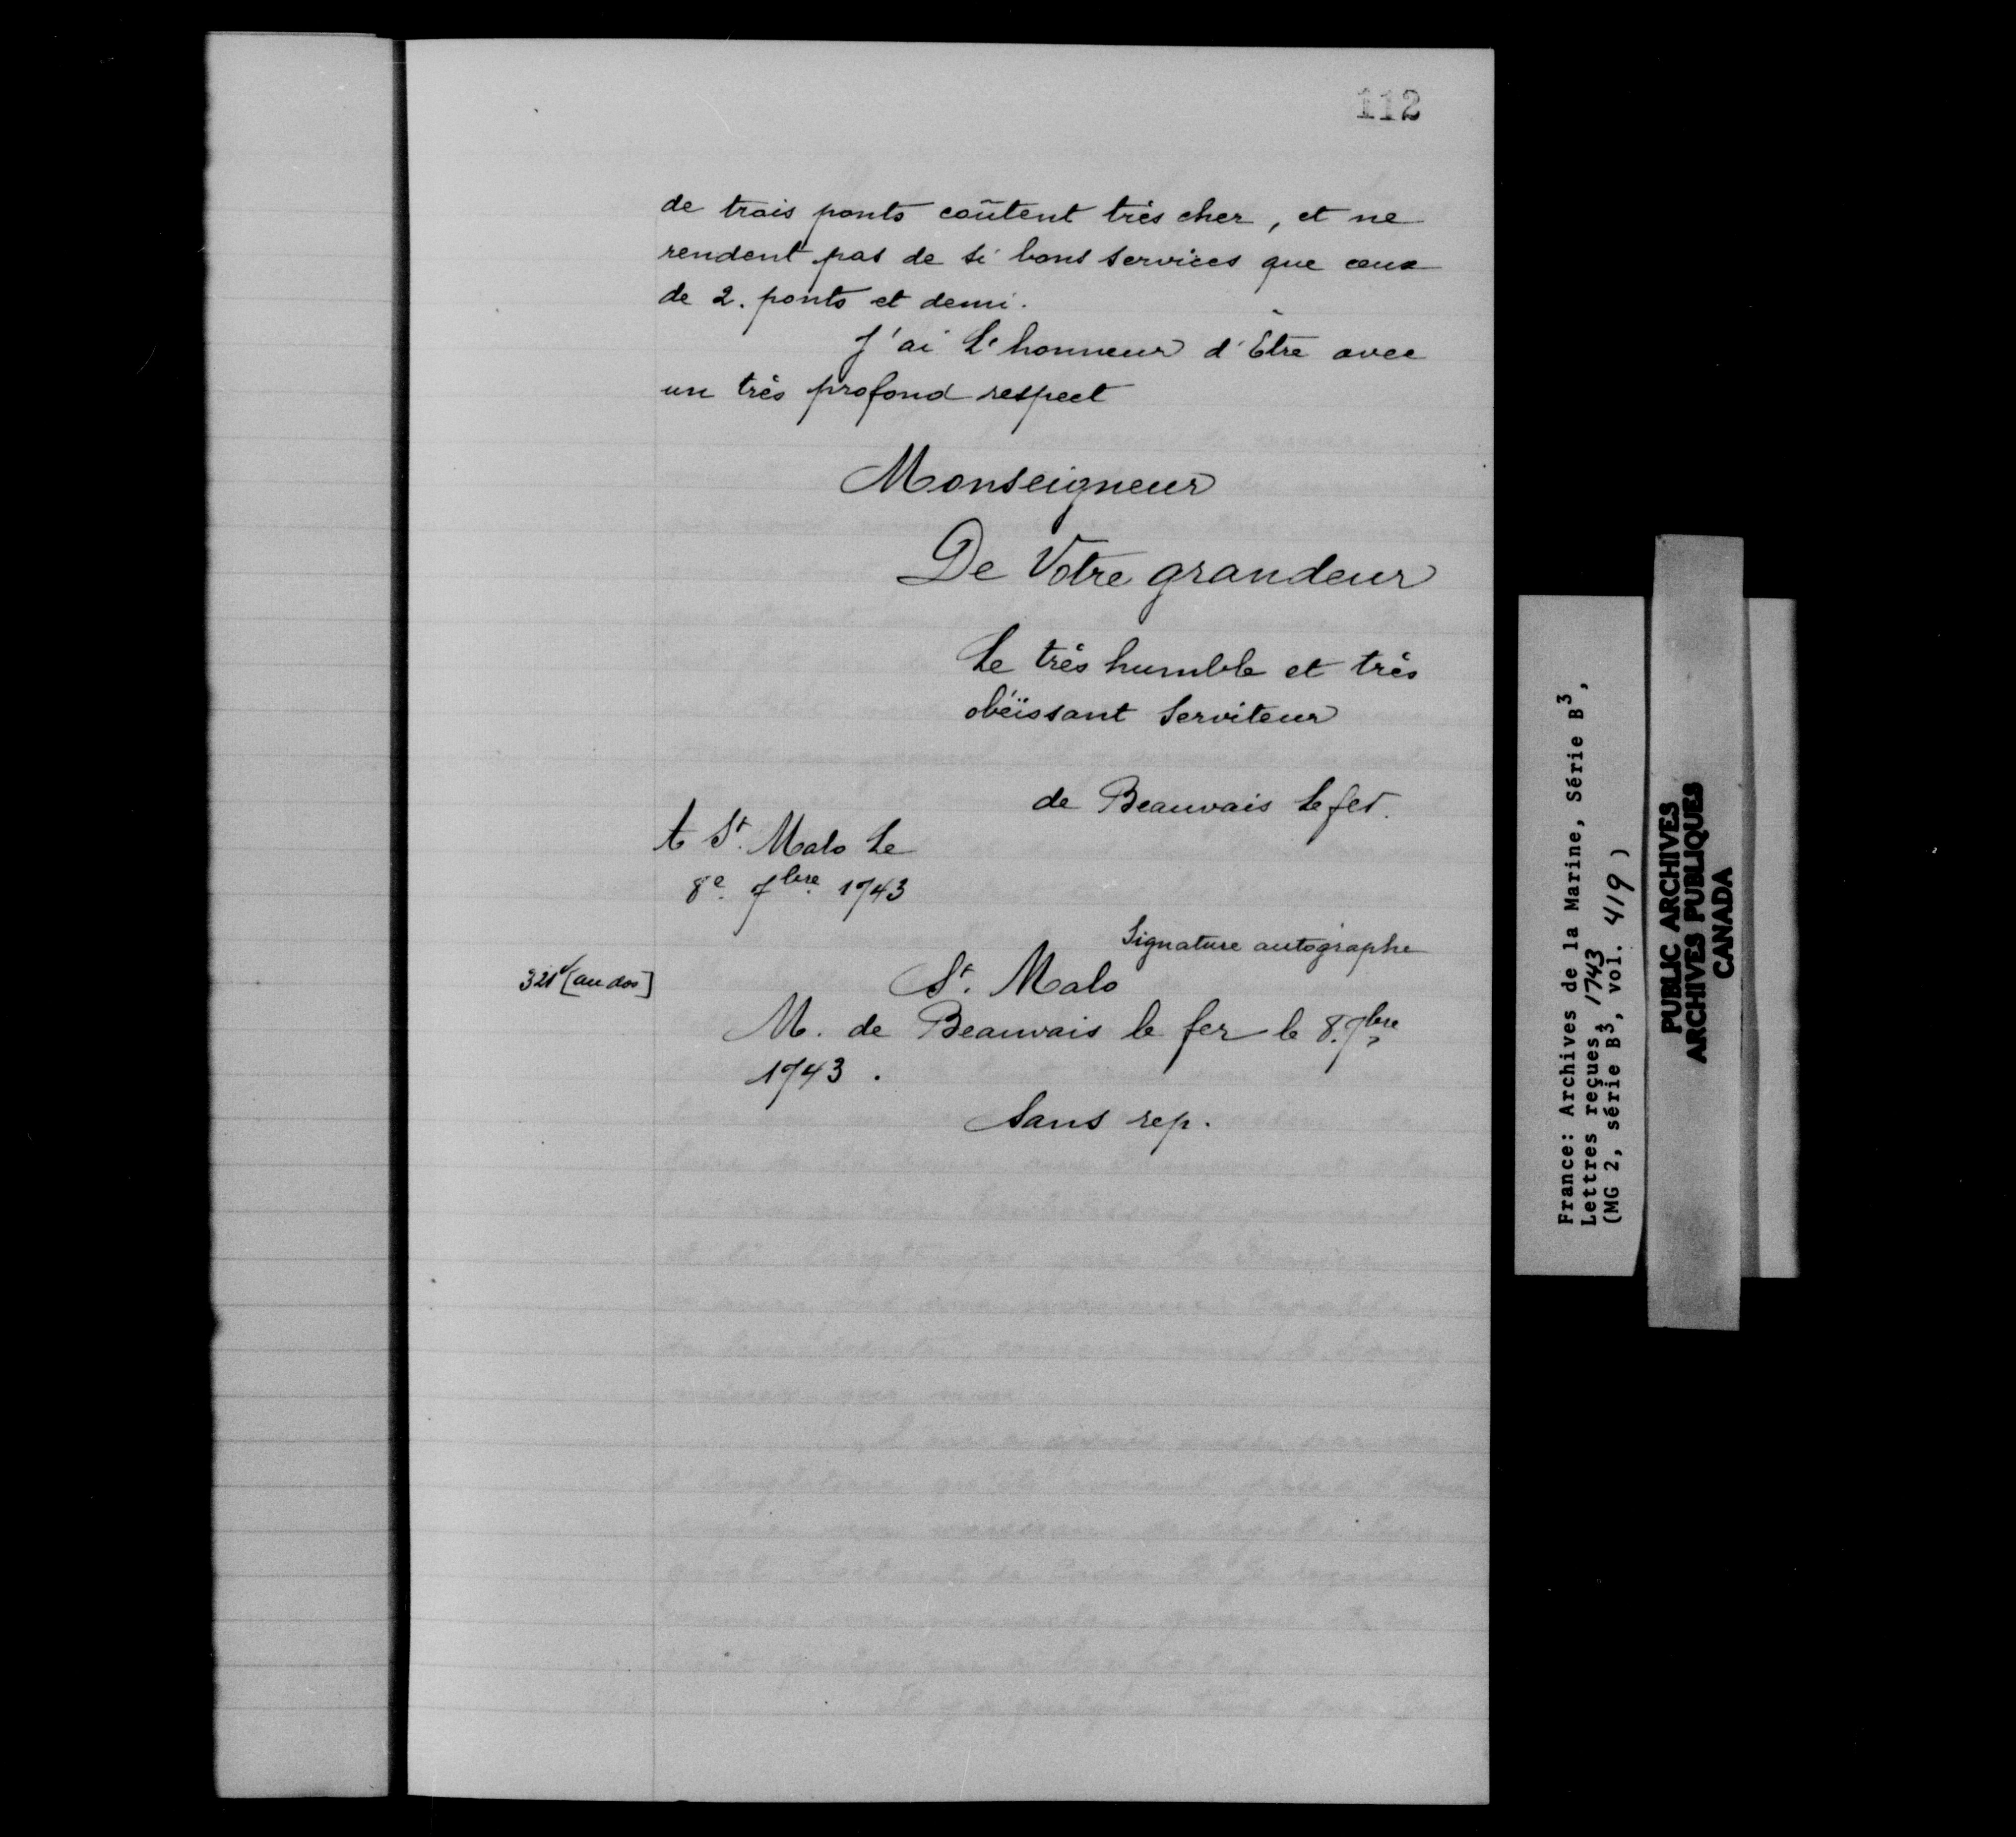 112
de trois ponts coûtent très cher, et ne
rendent pas de si bons services que ceux
de 2. ponts et demi.
J'ai L'honneur d'Être avec
un très profond respect
Monseigneur
De Votre grandeur
Le très humble et très
obéïssant Serviteur
de Beauvais Lefer.
A St. Malo Le
8e. 7bre. 1743
Signature autographe
321v [au dos]
St. Malo
M. de Beauvais le fer le 8. 7bre
1743.
Sans rep.
France: Archives de la Marine, Série B3,
Lettres reçues, 1743
(MG 2, série B3, vol. 419)
PUBLIC ARCHIVES
ARCHIVES PUBLIQUES
CANADA